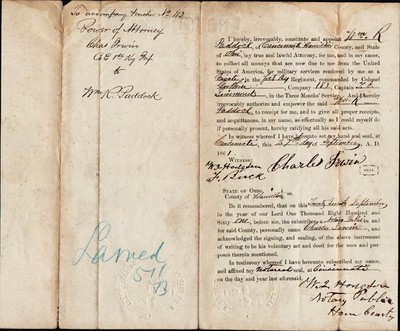 To accompany Voucher No 42
Power of Attorney
Chas Irwin
Co E 1st Ky Inf
to
Wm R. Paddock
Larned
511
I hereby, irrevocably, constitute and appoint Wm. R
Paddock, of Cincinnati Hamilton County, and State
of Ohio, my true and lawful Attorney, for me, and in my name,
to collect all moneys that are now due to me from the United
States of America, for military services rendered by me as a
in the 1st Ky Regiment, commanded by Colonel
Guthrie, Company, Captain
in the Three Months' Service. And I hereby
irrevocably authorize and empower the said Wm R
Paddock, to receipt for me, and to give all proper receipts,
and acquittances, in my name, as effectually as I could myself do
if personally present, hereby ratifying all his said acts.
In witness whereof I have hereunto set my hand and seal, at
Cincinnati, this day of September, A. D.
1861.
Witness:
W. L. Hodgden
F. Buck
Charles Irwin
SEAL
State of Ohio,
County of Hamilton ss.
Be it remembered, that on this Twenty seventh September
in the year of our Lord One Thousand Eight Hundred and
Sixty One, before me, the subscriber, a Notary Public in
and for said County, personally came Charles Irwin, and
acknowledged the signing and sealing, of the above instrument
of writing to be his voluntary act and deed for the uses and purposes therein mentioned.
In testimony whereof I have hereunto subscribed my name,
and affixed my Notarial seal, at Cincinnati
on the day and year last aforesaid.
W. L. Hodgden
Notary Public
Ham County